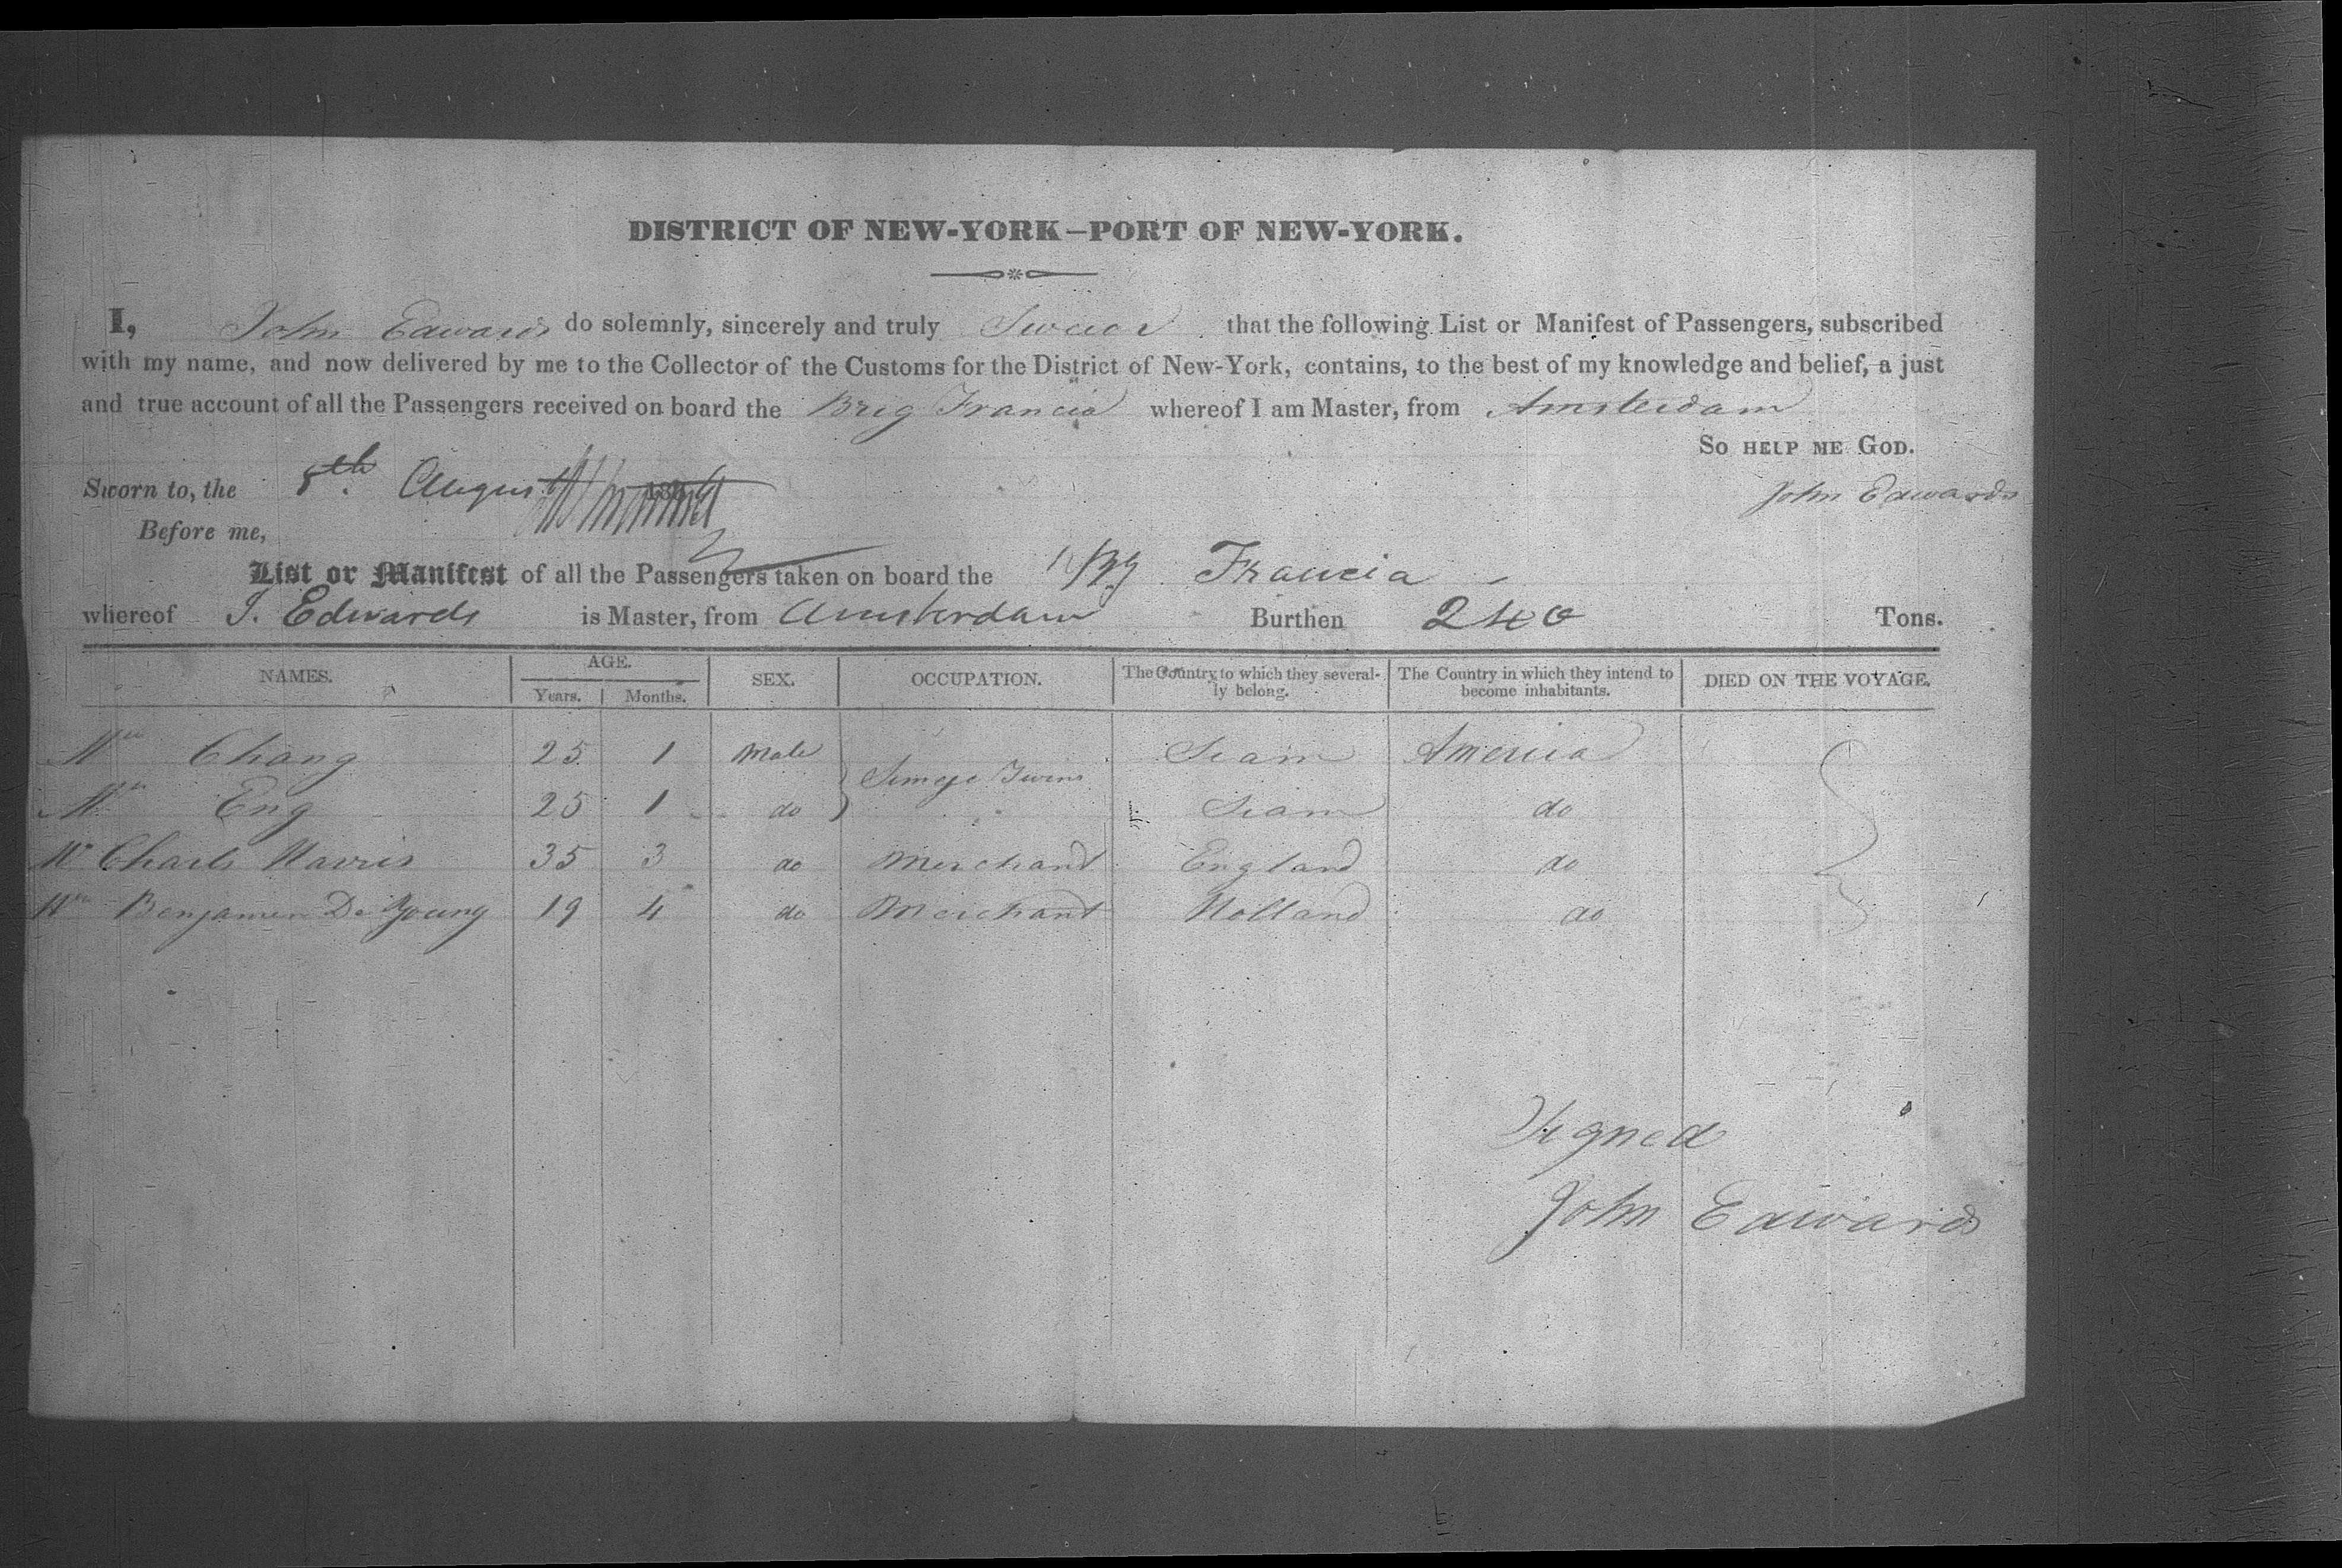 DISTRICT OF NEW-YORK—PORT OF NEW-YORK.
I, John Edwards do solemnly, sincerely and truly Swear that the following List or Manifest of Passengers, subscribed
with my name, and now delivered by me to the Collector of the Customs for the District of New-York, contains, to the best of my knowledge and belief, a just
and true account of all the Passengers received on board the Brig Francia whereof I am Master, from Amsterdam
So HELP ME GOD.
Sworn to, the 8th August 183 John Edwards
Before me,
List or Manifest of all the Passengers taken on board the Francia
whereof J. Edwards is Master, from Amsterdam Burthen 240 Tons.
NAMES. AGE. SEX. OCCUPATION. The Country to which they several-ly belong. The Country in which they intend to become inhabitants. DIED ON THE VOYAGE.
Years. Months.
Chang 25 1 Male Siam America
Twins
Eng 25 1 do Siam do
Mr Charls Harris 35 3 do Merchand England do
Benjamen De Young 19 4 do Merchant Holland do
Signed
John Edwards